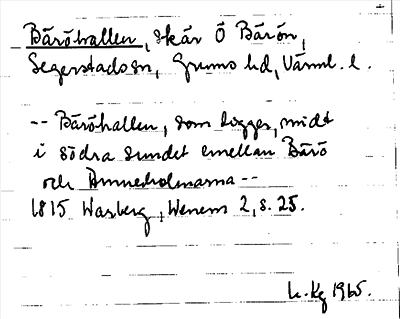 Bäröhallen, skär Ö Bärön,
Segerstads sn, Grums hd, Värml. l.
-- Bäröhallen, som ligger, midt
i södra sundet emellan Bärö
och Ammeholmarna --
1815 Warberg, Wenern 2, s. 25.
1965.